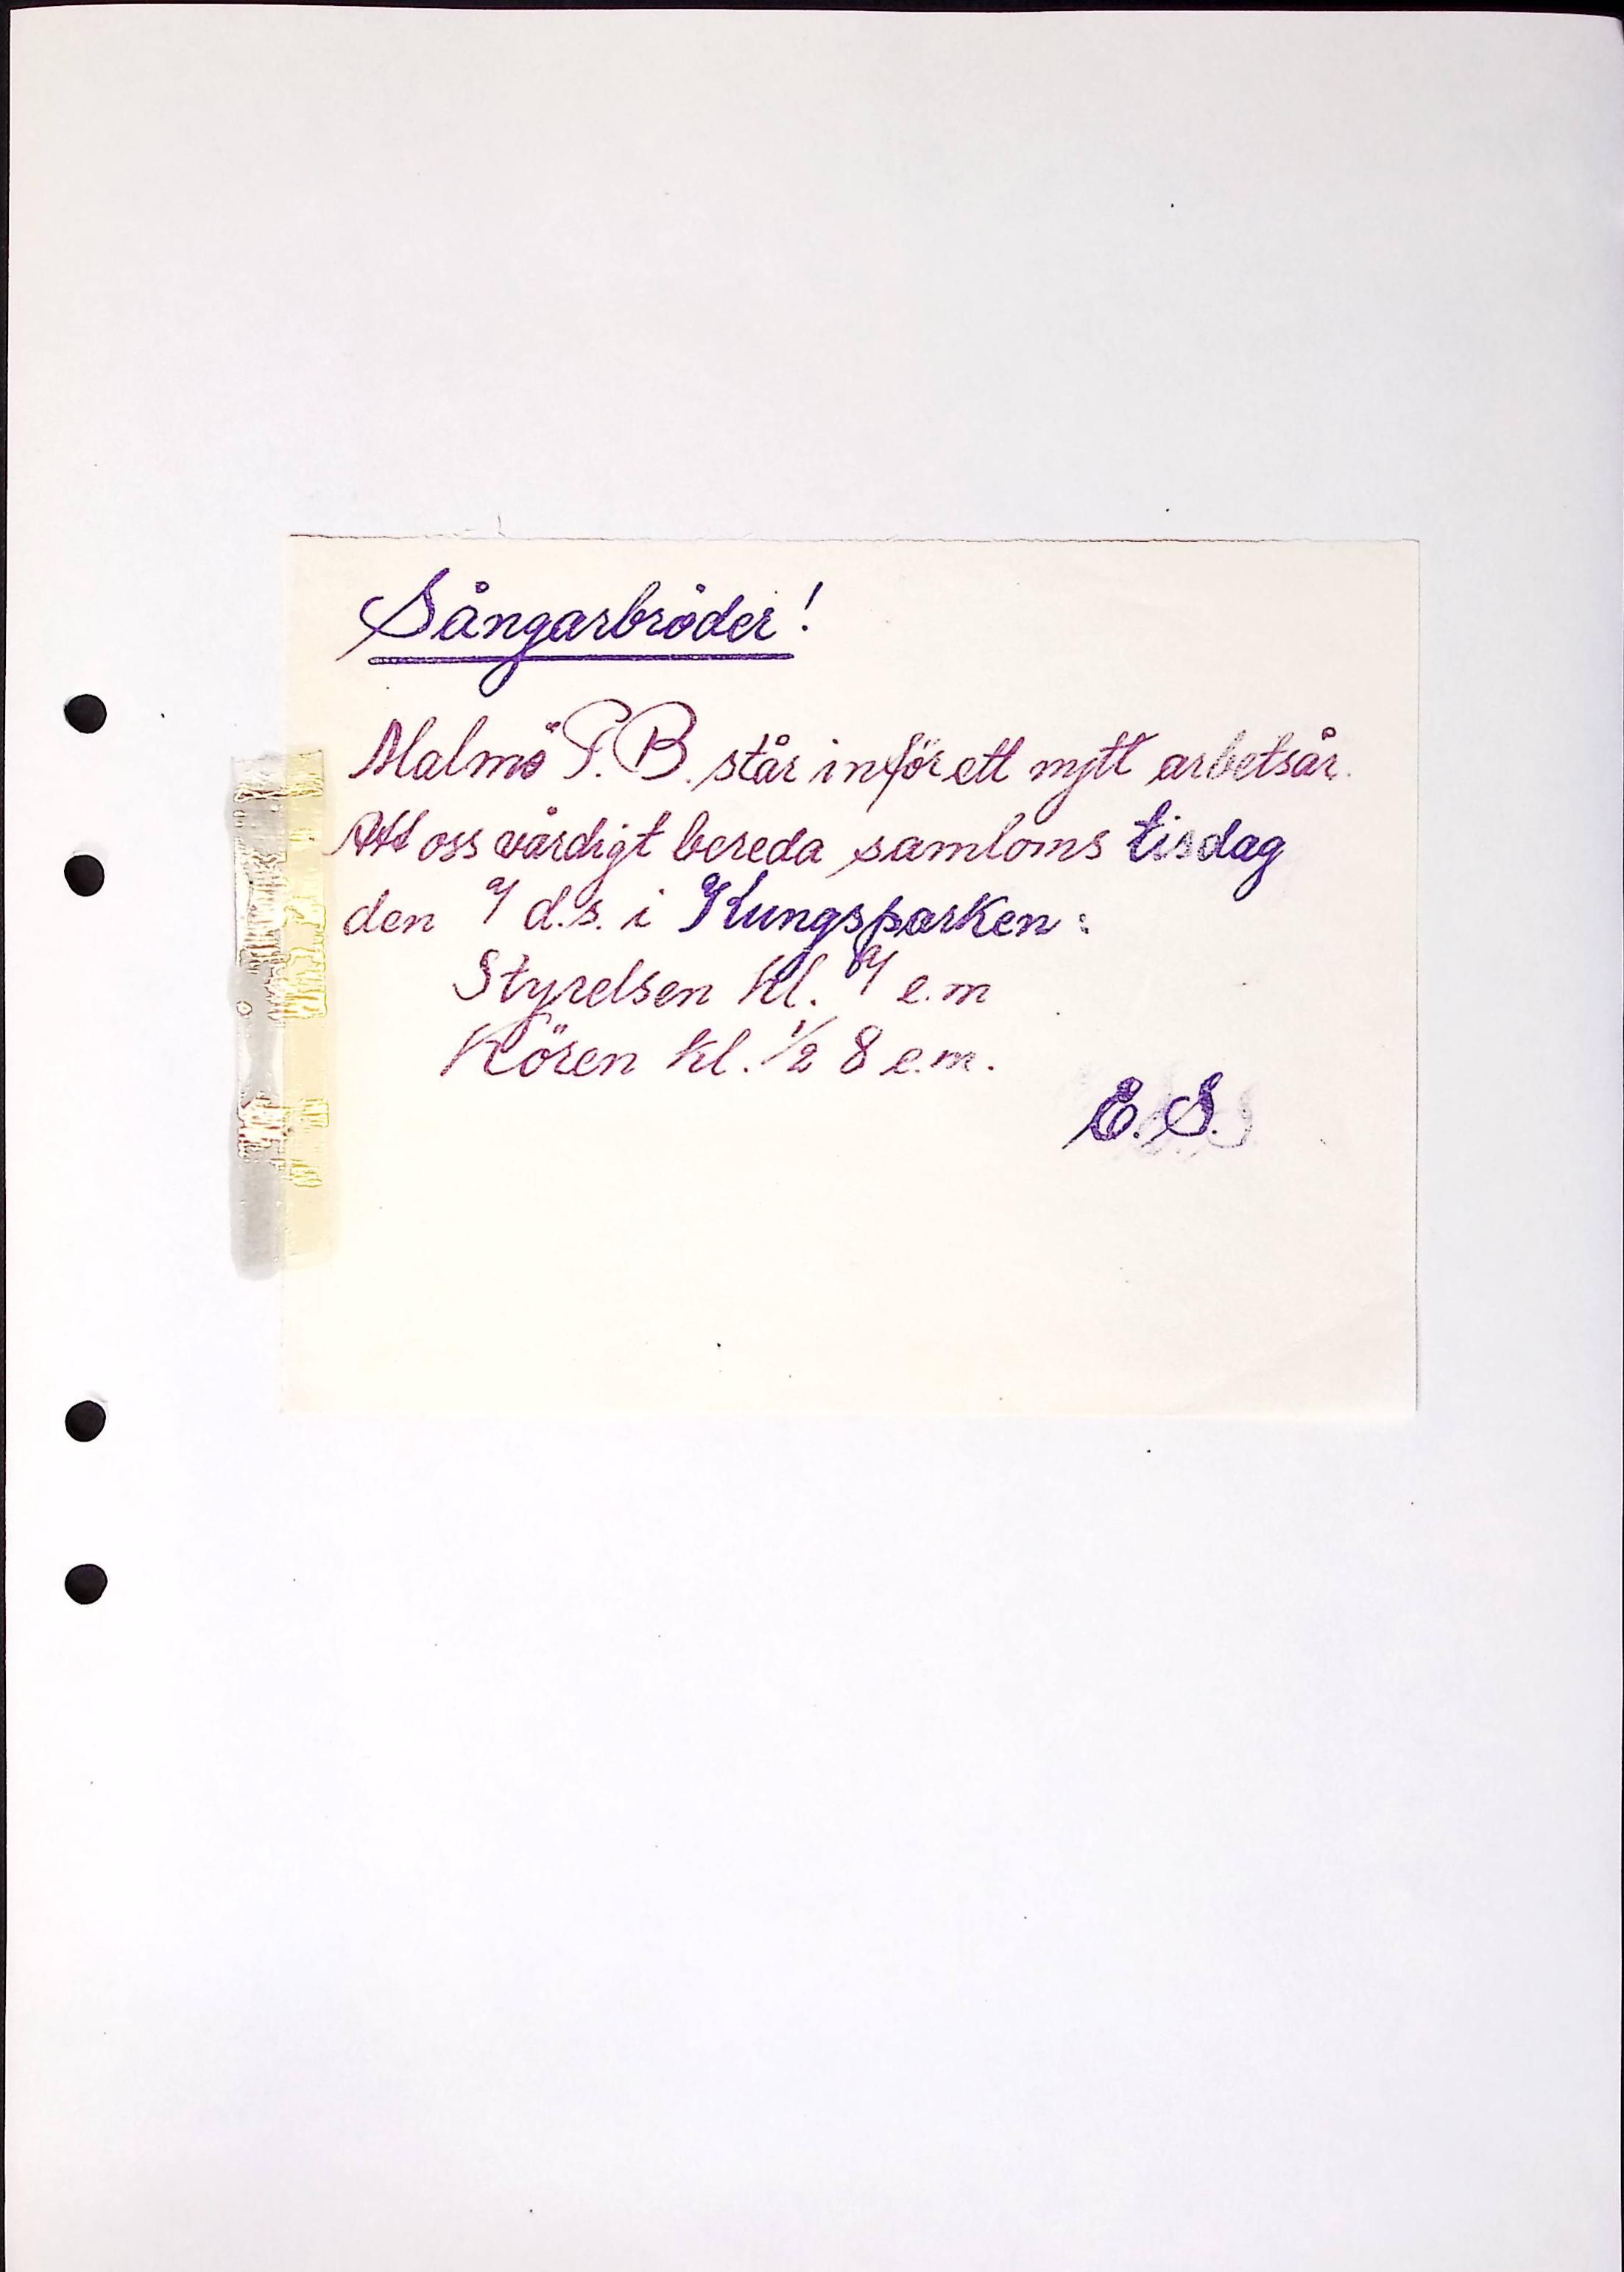 Sångarbröder!
Malmö P.B. står inför ett nytt arbetsår.
Att oss värdigt bereda samloms tisdag
den 7 d.s. i Kungsparken:
Styrelsen kl. 7 e.m
Kören kl. 1/2 8 e.m.
E. S.